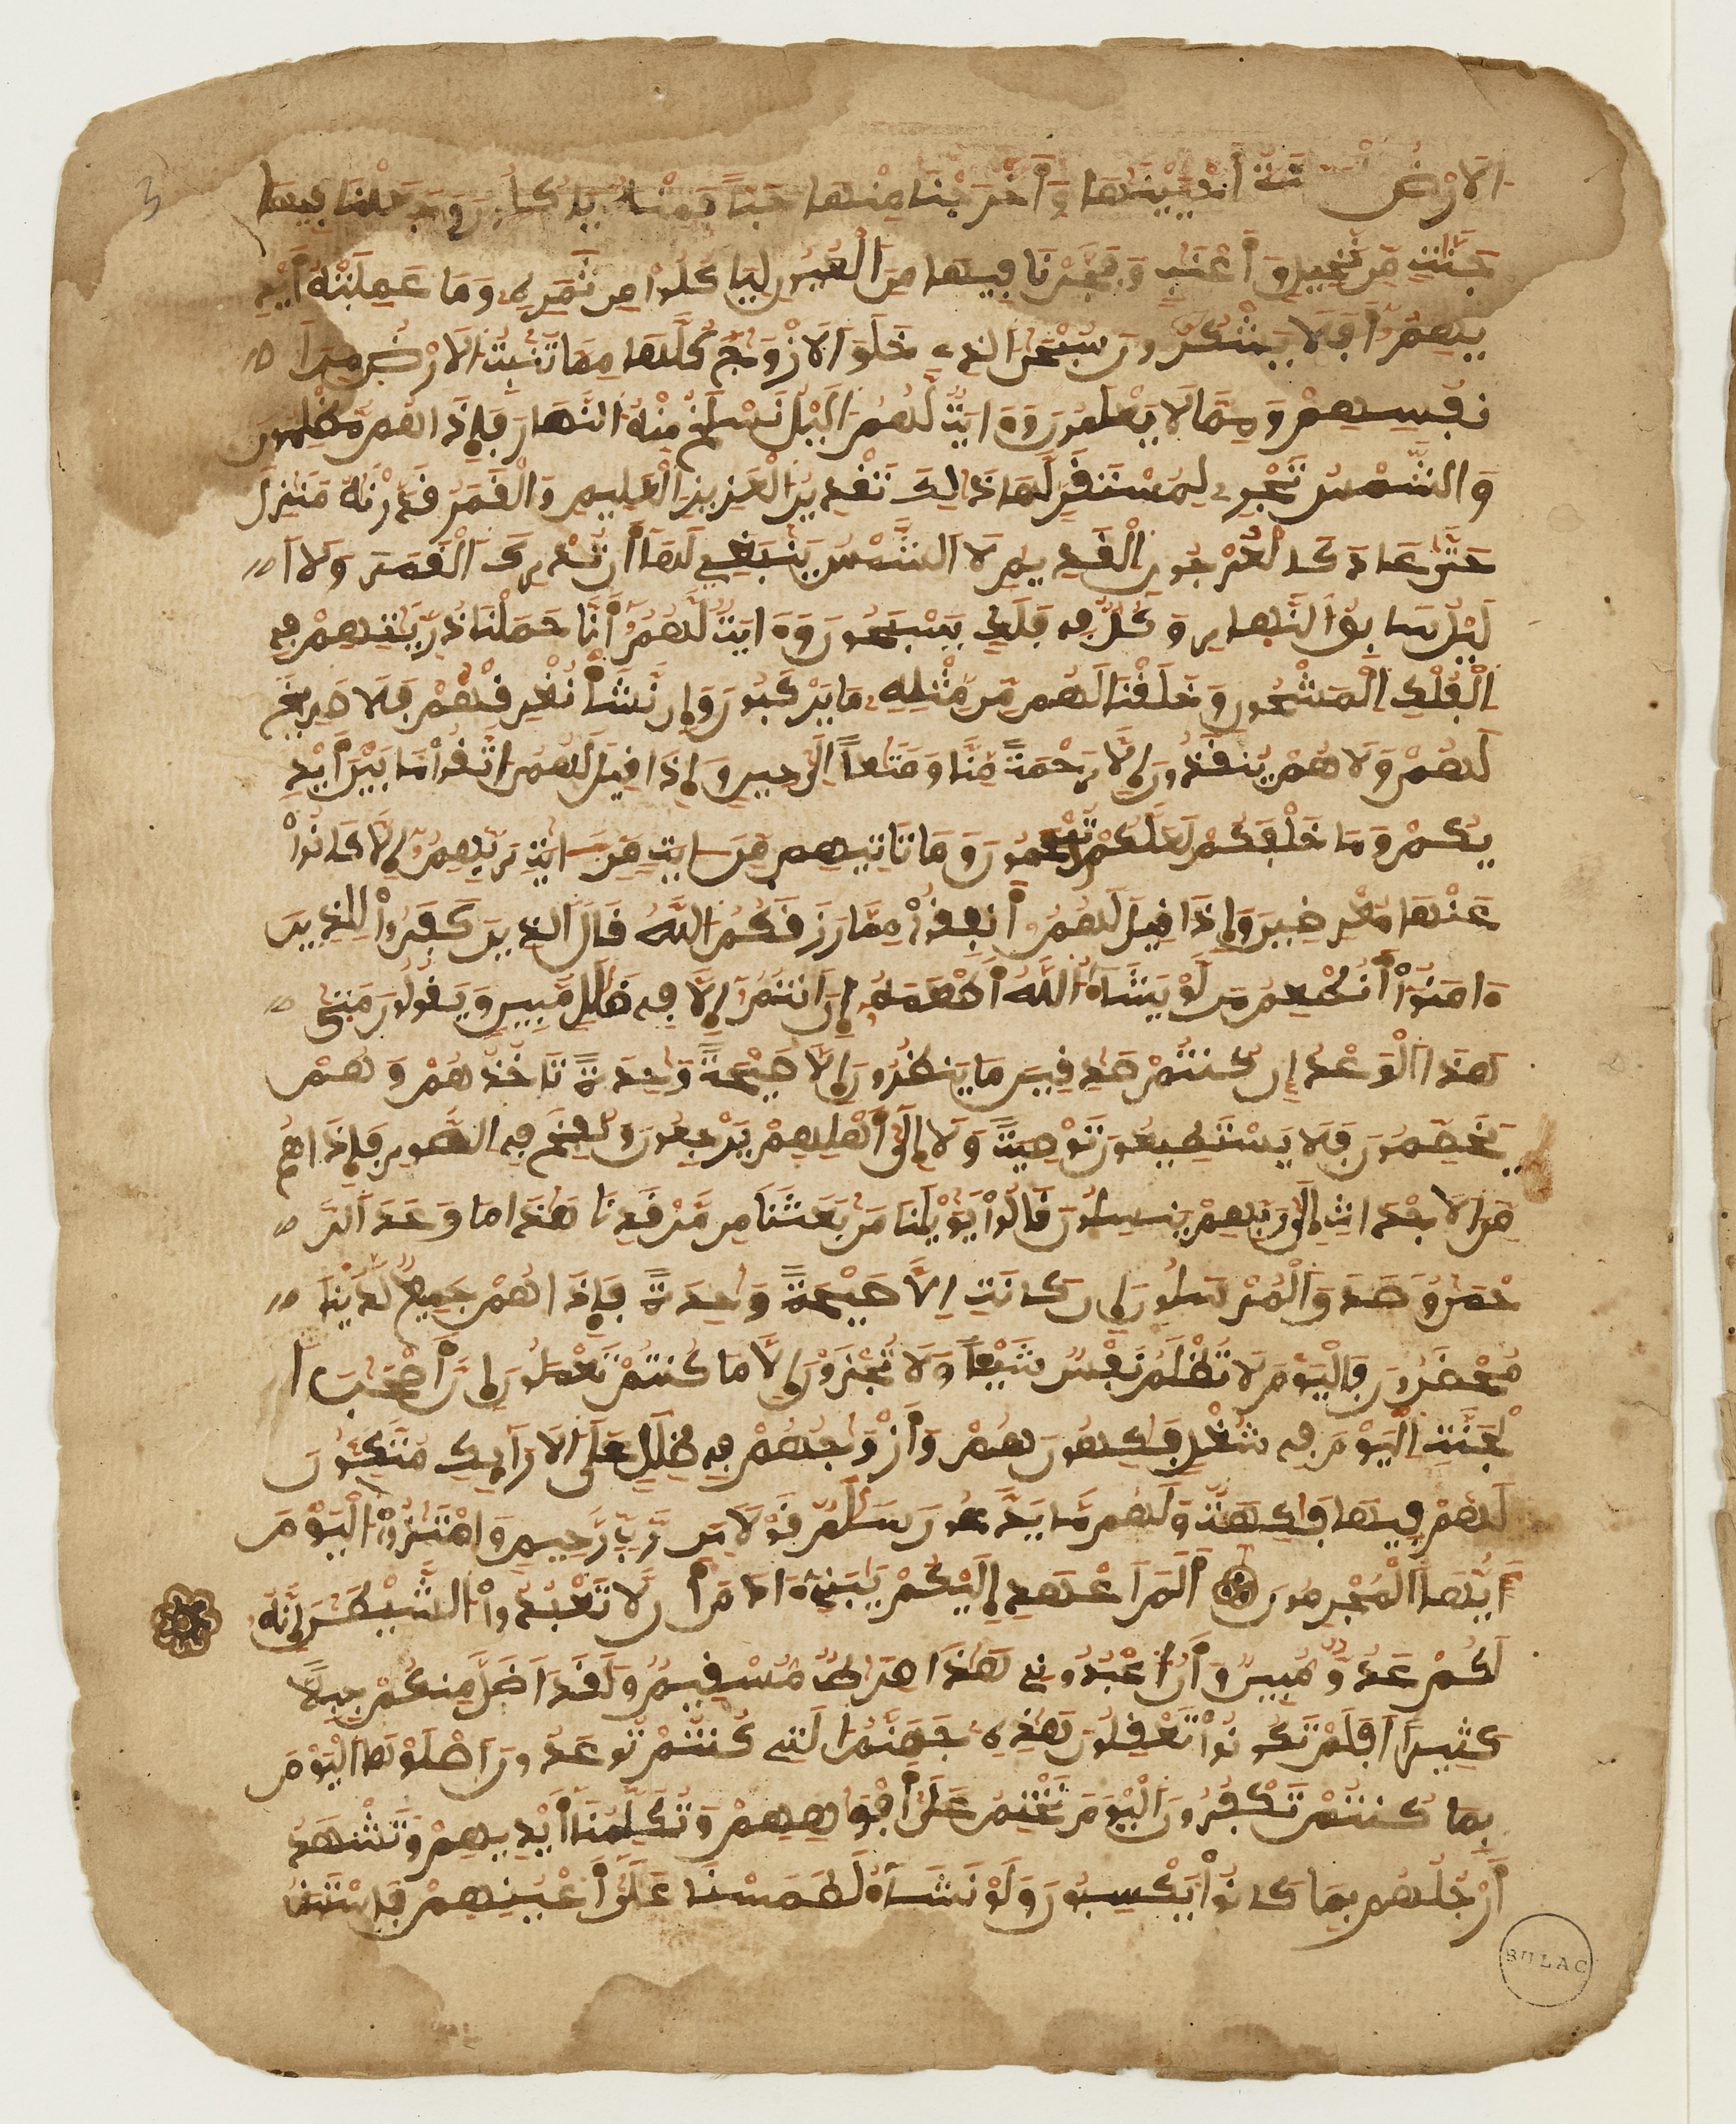 الَارْضُ الْمَيِّتَةُ أَحْيَيْنَٰهَا وَأَخْرَجْنَا مِنْهَا حَبّاً فَمِنْهُ يَاكُلُونَ وَجَعَلْنَا فِيهَا
جَنَّٰتٍ مِّن نَّخِيلٍ وَأَعْنَٰبٍ وَفَجَّرْنَا فِيهَا مِنَ الْعُيُونِ لِيَاكُلُواْ مِن ثَمَرِهِۦ وَمَا عَمِلَتْهُ أَيْدِ
يهِمُۥٓ أَفَلَا يَشْكُرُونَ سُبْحَٰنَ الذِے خَلَقَ الَازْوَٰجَ كُلَّهَا مِمَّا تُنۢبِتُ الَارْضُ وَمِنَ اَ
نفُسِهِمْ وَمِمَّا لَا يَعْلَمُونَ وَءَايَةٌ لَّهُمُ الَيْلُ نَسْلَخُ مِنْهُ النَّهَارَ فَإِذَا هُم مُّظْلِمُونَ
وَالشَّمْسُ تَجْرِے لِمُسْتَقَرٍّ لَّهَا ذَٰلِكَ تَقْدِيرُ الْعَزِيزِ الْعَلِيمِ وَالْقَمَرُ قَدَّرْنَٰهُ مَنَازِلَ
حَتَّىٰ عَادَ كَالْعُرْجُونِ الْقَدِيمِ لَا الشَّمْسُ يَنۢبَغِے لَهَا أَن تُدْرِكَ الْقَمَرَ وَلَا اَ
لَيْلُ سَابِقُ النَّهَارِ وَكُلٌّ فِے فَلَكٍ يَسْبَحُونَ وَءَايَةٌ لَّهُمُۥٓ أَنَّا حَمَلْنَا ذُرِّيَّٰتِهِمْ فِے
الْفُلْكِ الْمَشْحُونِ وَخَلَقْنَا لَهُم مِّن مِّثْلِهِۦ مَا يَرْكَبُونَ وَإِن نَّشَأْ نُغْرِقْهُمْ فَلَا صَرِيخَ
لَهُمْ وَلَا هُمْ يُنقَذُونَ إِلَّا رَحْمَةً مِّنَّا وَمَتَٰعاً اِلَىٰ حِينٍ وَإِذَا قِيلَ لَهُمُ اتَّقُواْ مَا بَيْنَ أَيْدِ
يكُمْ وَمَا خَلْفَكُمْ لَعَلَّكُمْ تُرْحَمُونَ وَمَا تَاتِيهِم مِّنَ ايَةٍ مِّنَ ايَٰتِ رَبِّهِمُۥٓ إِلَّا كَانُواْ
عَنْهَا مُعْرِضِينَ وَإِذَا قِيلَ لَهُمُۥٓ أَنفِقُواْ مِمَّا رَزَقَكُمُ اللَّهُ قَالَ الذِينَ كَفَرُواْ لِلذِينَ
ءَامَنُوٓاْ أَنُطْعِمُ مَن لَّوْ يَشَآءُ اللَّهُ أَطْعَمَهُۥٓ إِنَ انتُمُۥٓ إِلَّا فِے ضَلَٰلٍ مُّبِينٍ وَيَقُولُونَ مَتَىٰ
هَٰذَا الْوَعْدُ إِن كُنتُمْ صَٰدِقِينَ مَا يَنظُرُونَ إِلَّا صَيْحَةً وَٰحِدَةً تَاخُذُهُمْ وَهُمْ
يَخَصِّمُونَ فَلَا يَسْتَطِيعُونَ تَوْصِيَةً وَلَا إِلَىٰٓ أَهْلِهِمْ يَرْجِعُونَ وَنُفِخَ فِے الصُّورِ فَإِذَا هُم
مِّنَ الَاجْدَاثِ إِلَىٰ رَبِّهِمْ يَنسِلُونَ قَالُواْ يَٰوَيْلَنَا مَن بَعَثَنَا مِن مَّرْقَدِنَا هَٰذَا مَا وَعَدَ الرَّ
حْمَٰنُ وَصَدَقَ الْمُرْسَلُونَ إِن كَانَتِ اِلَّا صَيْحَةً وَٰحِدَةً فَإِذَا هُمْ جَمِيعٌ لَّدَيْنَا
مُحْضَرُونَ فَالْيَوْمَ لَا تُظْلَمُ نَفْسٌ شَيْـٔاً وَلَا تُجْزَوْنَ إِلَّا مَا كُنتُمْ تَعْمَلُونَ إِنَّ أَصْحَٰبَ ا
لْجَنَّةِ الْيَوْمَ فِے شُغْلٍ فَٰكِهُونَ هُمْ وَأَزْوَٰجُهُمْ فِے ظِلَٰلٍ عَلَى الَارَآئِكِ مُتَّكِـُٔونَ
لَهُمْ فِيهَا فَٰكِهَةٌ وَلَهُم مَّا يَدَّعُونَ سَلَٰمٌ قَوْلًا مِّن رَّبٍّ رَّحِيمٍ وَامْتَٰزُواْ الْيَوْمَ
أَيُّهَا الْمُجْرِمُونَ أَلَمَ اَعْهَدِ اِلَيْكُمْ يَٰبَنِےٓ ءَادَمَ أَن لَّا تَعْبُدُواْ الشَّيْطَٰنَ إِنَّهُۥ
لَكُمْ عَدُوٌّ مُّبِينٌ وَأَنُ اعْبُدُونِے هَٰذَا صِرَٰطٌ مُّسْتَقِيمٌ وَلَقَدَ اَضَلَّ مِنكُمْ جِبِلًّا
كَثِيراً اَفَلَمْ تَكُونُواْ تَعْقِلُونَ هَٰذِهِۦ جَهَنَّمُ التِے كُنتُمْ تُوعَدُونَ اَصْلَوْهَا الْيَوْمَ
بِمَا كُنتُمْ تَكْفُرُونَ الْيَوْمَ نَخْتِمُ عَلَىٰٓ أَفْوَٰهِهِمْ وَتُكَلِّمُنَا أَيْدِيهِمْ وَتَشْهَدُ
أَرْجُلُهُم بِمَا كَانُواْ يَكْسِبُونَ وَلَوْ نَشَآءُ لَطَمَسْنَا عَلَىٰٓ أَعْيُنِهِمْ فَاسْتَبَقُوا
BULAC
3